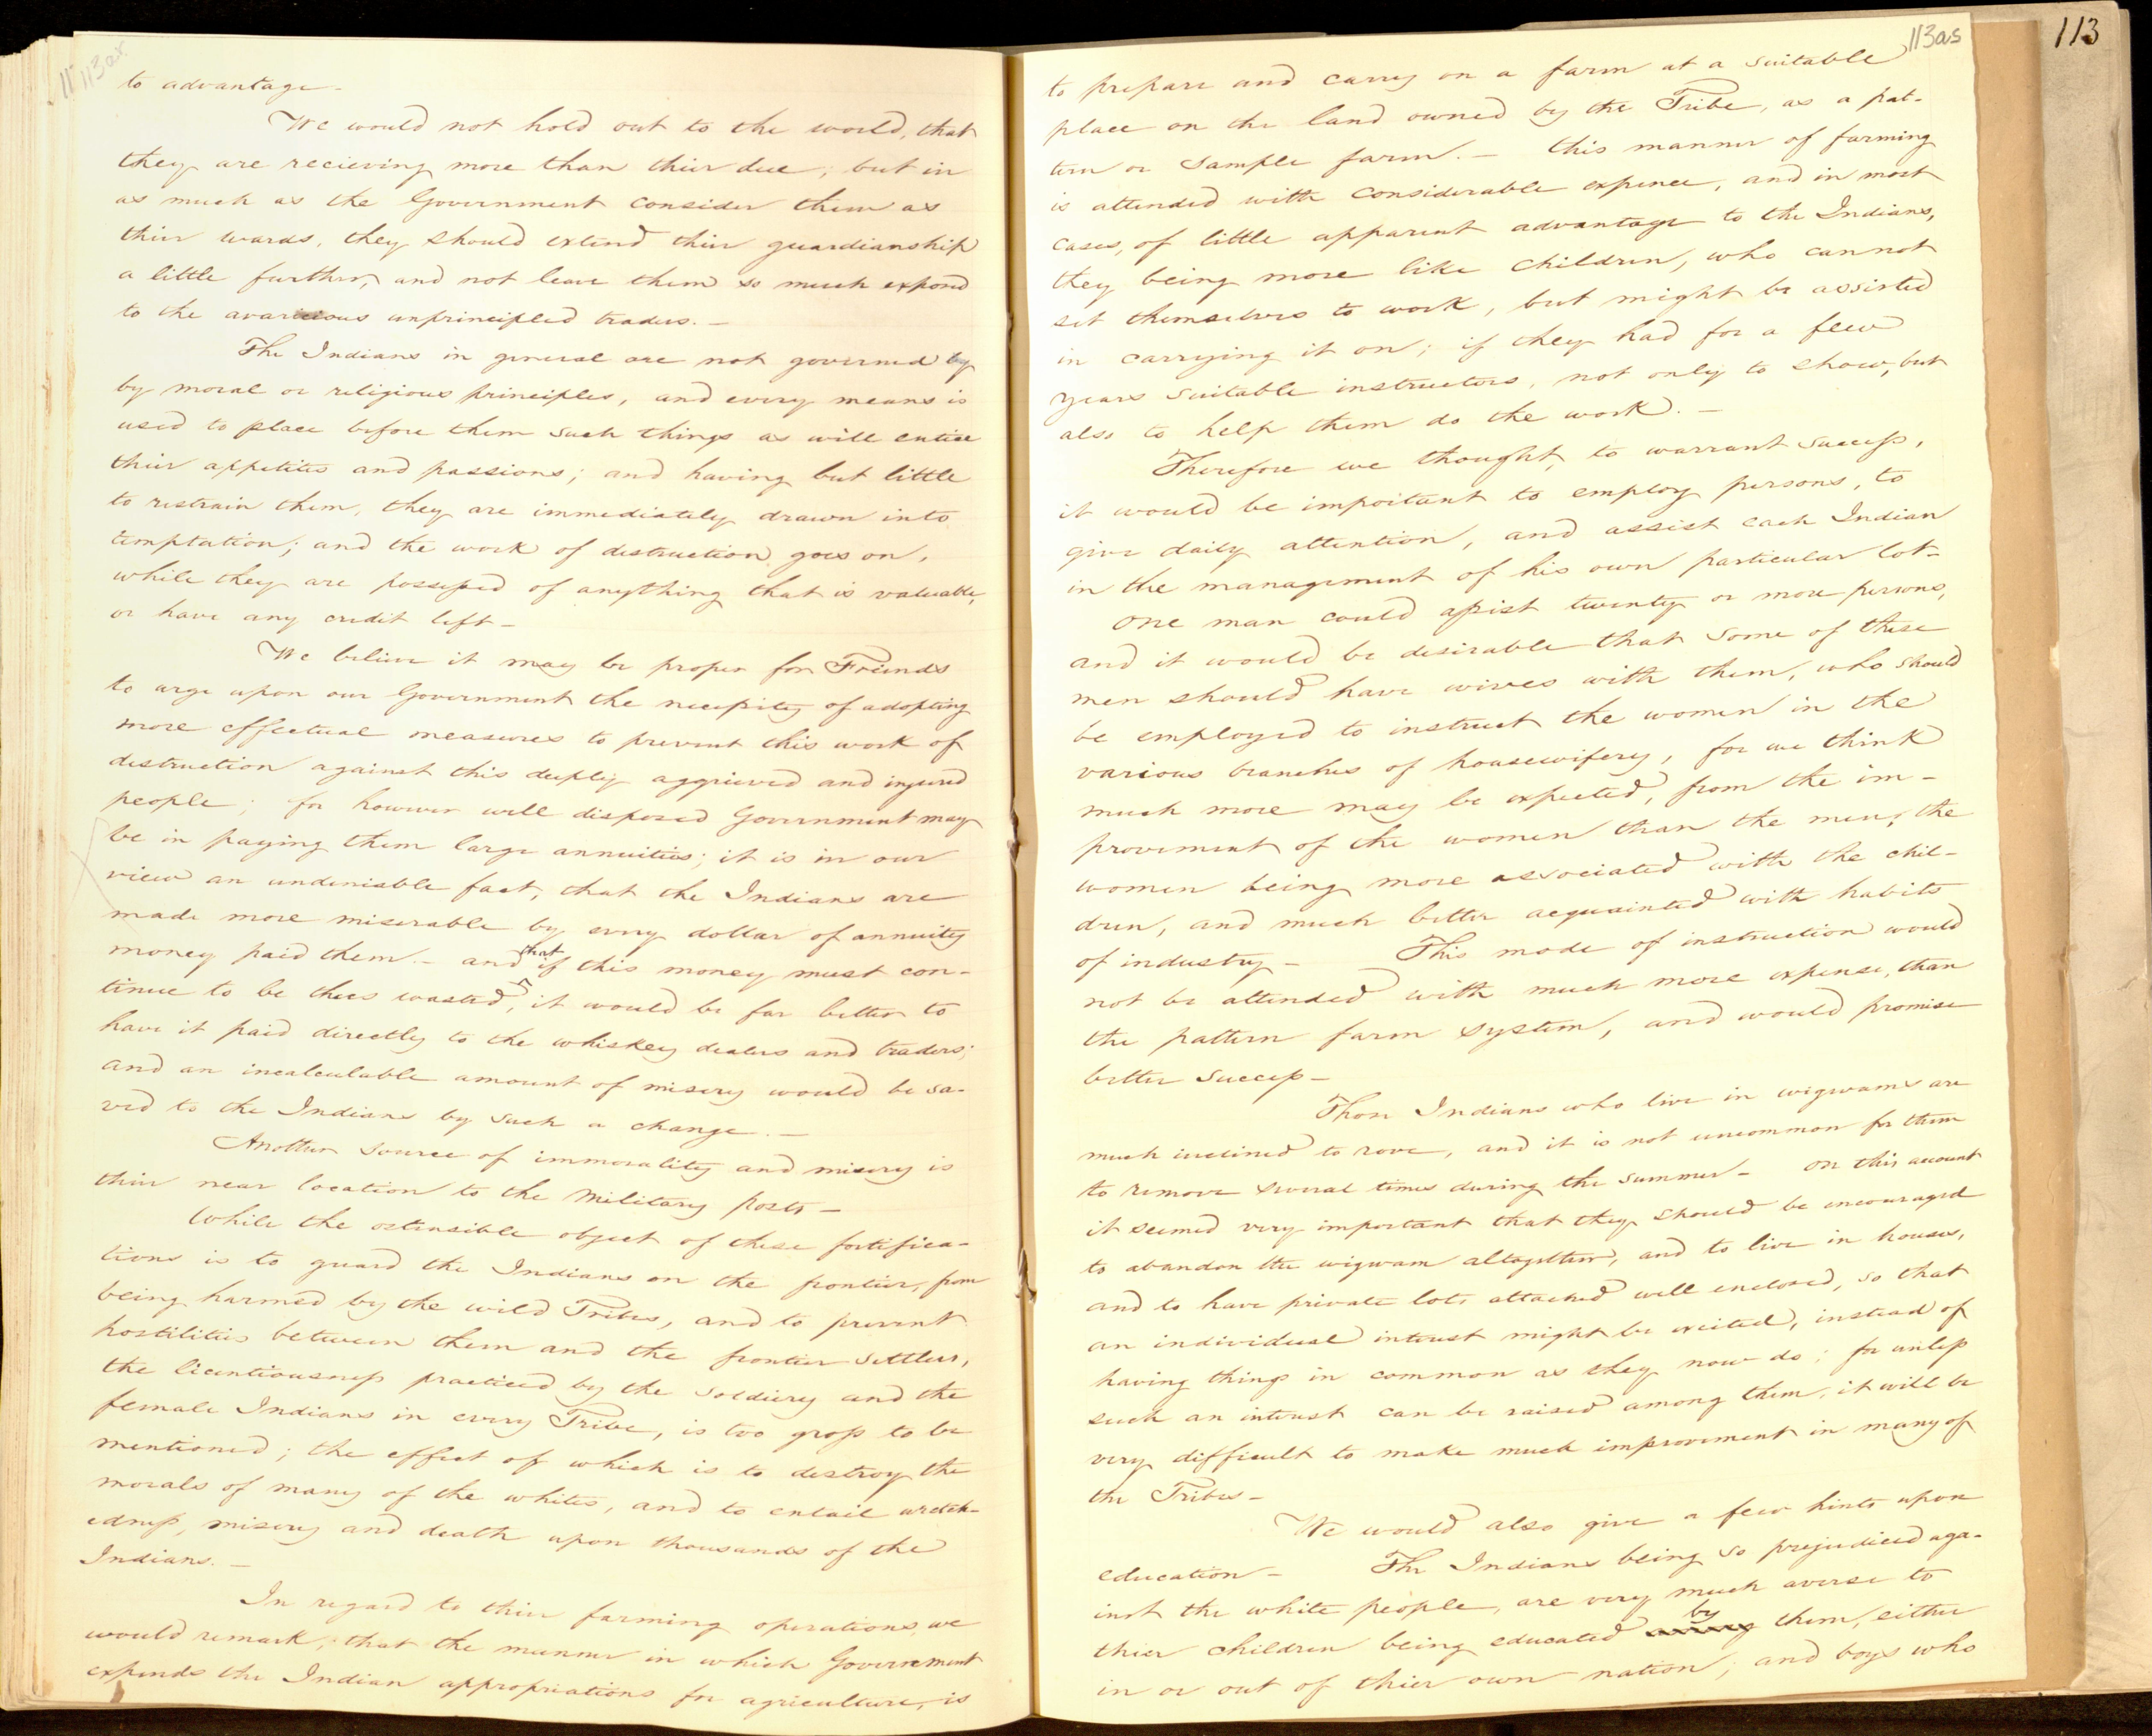 113ar
to advantage.
We would not hold out to the world, that
they are recieving more than thier due; but in
as much as the Government consider them as
thier wards, they should extend thier guardianship
a little further, and not leave them so much exposed
to the avaricious unprincipled traders. —
The Indians in general are not governed by
by moral or religious principles, and every means is
used to place before them such things as will entice
thier appetites and passions; and having but little
to restrain them, they are immediately drawn into
temptation; and the work of destruction goes on,
while they are possessed of anything that is valuable,
or have any credit left —
We believe it may be proper for Friends
to urge upon our Government the necessity of adopting
more effectual measures to prevent this work of
destruction against this deeply aggrieved and injured
people; for however well disposed Government may
be in paying them large annuities; it is in our
view an undeniable fact, that the Indians are
made more miserable by every dollar of annuity
money paid them. — and that if this money must con-
tinue to be thus wasted, it would be far better to
have it paid directly to the whiskey dealers and traders;
and an incalculable amount of misery would be sa-
ved to the Indians by such a change. —
Another source of immorality and misery is
thier near location to the Military posts —
While the ostensible object of these fortifica-
tions is to guard the Indians on the frontier, from
being harmed by the wild Tribes, and to prevent
hostilities between them and the frontier settlers,
the licentiousness practiced by the soldiery and the
female Indians in every Tribe, is too gross to be
mentioned; the effect of which is to destroy the
morals of many of the whites, and to entail wretch-
edness, misery and death upon thousands of the
Indians. —
In regard to thier farming operations we
would remark, that the manner in which Government
expends the Indian appropriations for agriculture, is
113as
113
to prepare and carry on a farm at a suitable
place on the land owned by the Tribe, as a pat-
tern or sample farm. — this manner of farming
is attended with considerable expence, and in most
cases, of little apparent advantage to the Indians,
they being more like children, who cannot
set themselves to work, but might be assisted
in carrying it on; if they had for a few
years suitable instructors, not only to show, but
also to help them do the work. —
Therefore we thought, to warrant success,
it would be important to employ persons, to
give daily attention, and assist each Indian
in the management of his own particular lot —
One man could assist twenty or more persons,
and it would be desirable that some of these
men should have wives with them, who should
be employed to instruct the women in the
various branches of housewifery, for we think
much more may be expected, from the im-
provement of the women than the men; the
women being more associated with the chil-
dren, and much better acquainted with habits
of industry — This mode of instruction would
not be attended with much more expense, than
the pattern farm system, and would promise
better success —
Those Indians who live in wigwams are
much inclined to rove, and it is not uncommon for them
to remove several times during the summer — on this account
it seemed very important that they should be encouraged
to abandon the wigwam altogether, and to live in houses,
and to have private lots attached well enclosed, so that
an individual interest might be excited, instead of
having things in common as they now do; for unless
such an interest can be raised among them, it will be
very difficult to make much improvement in many of
the Tribes —
We would also give a few hints upon
education — The Indians being so prejudiced aga-
inst the white people, are very much averse to
thier children being educated by them, either
in or out of thier own nation; and boys who